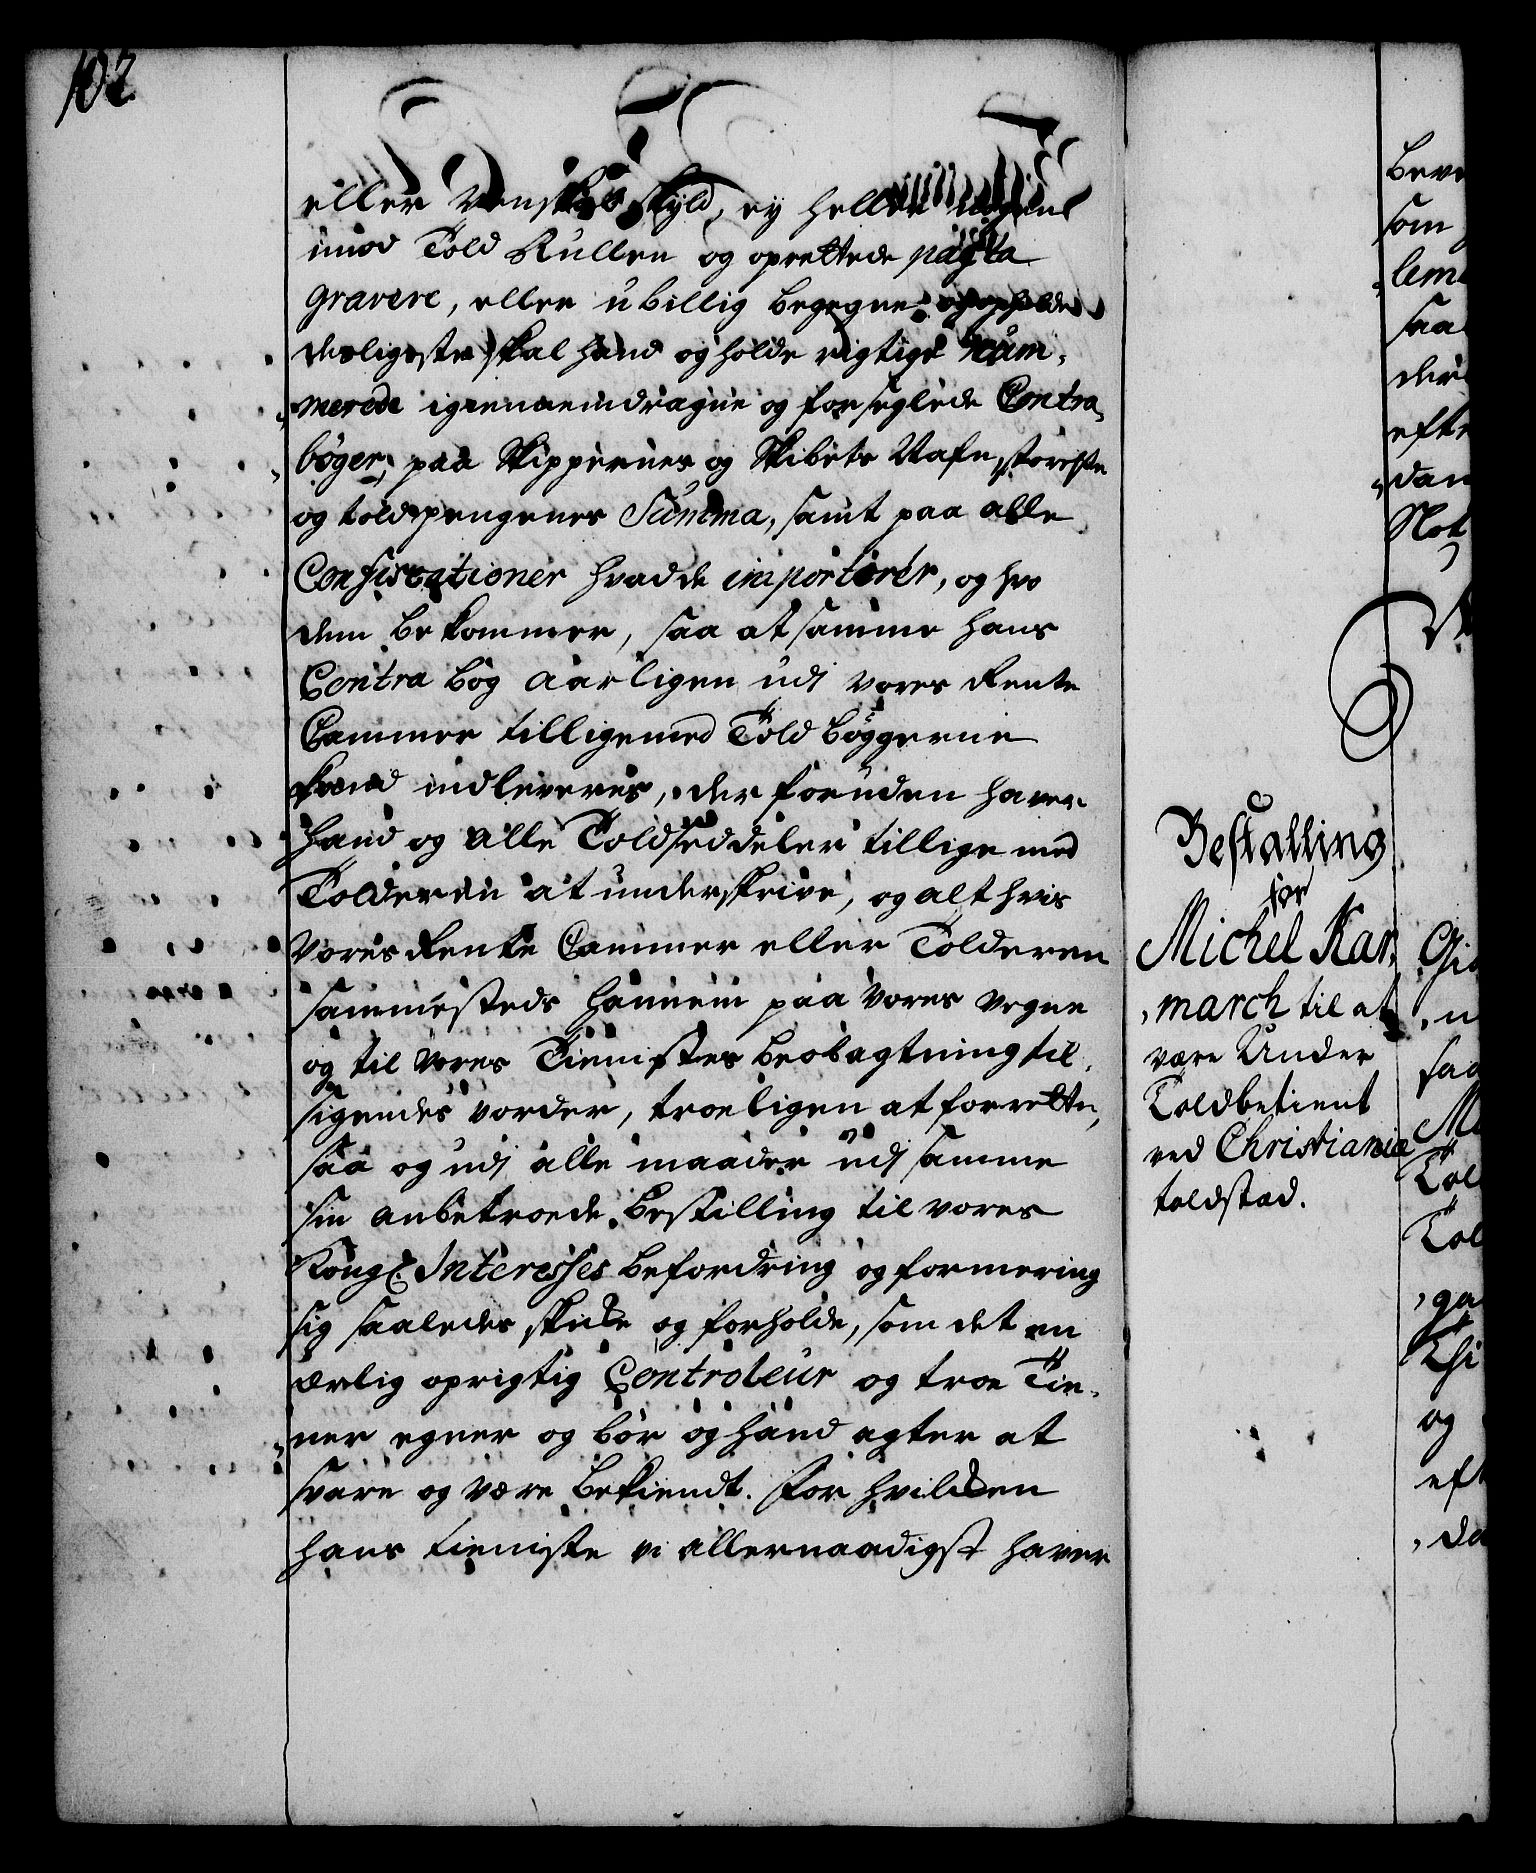 102
eller Venskabs skyld, ey heller nogen
imod Told Rullen og oprettede pagta
gravere, eller ubillig begegne og opholde
desligeste skal hand og holde rigtige Num-
merede igiennemdragne og forseglede Contra
bøger, paa Skippernes og Skibets Nafn, størrste
og toldpengenes Summa, samt paa alle
Confiscationer hvad de importerer, og hvo
dem bekommer, saa at samme hans
Contra bog aarligen udj vores Rente
Cammer tilligemed Told bøggerne
kand indleveres, der foruden haver
hand og alle Toldseddeler tillige med
Tolderen at underskrive, og alt hvis
Vores Rente Cammer eller Tolderen
sammesteds hannem paa Vores vegne
og til Vores Tienistes beobagtning til
sigendes vorder, troeligen at forrette,
saa og udj alle maader udj samme
sin anbetroede bestilling til vores
Kongl. Interesses befordring og formering
sig saaledes skicke og forholde, som det en
ærlig oprigtig Controleur og troe Tie-
ner egner og bør og hand agter at
svare og være bekiendt. For hvilcken
hans tieniste vi allernaadigst haver
Bestalling
for
Michel Kar-
march til at
være Under
Toldbetient
ved Christiania
toldstad.
som
saa
efte
dan
og